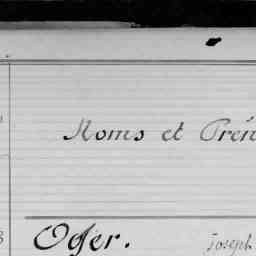 Noms et Prén
Oger. Joseph